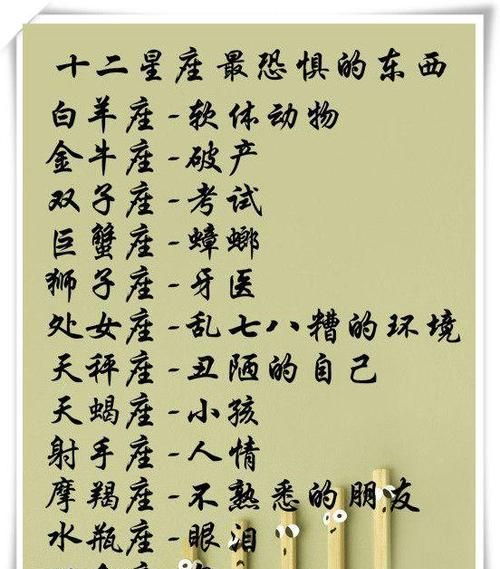 十二星座最恐惧的东西
白羊座-软体动物
金牛座-破产
双子座-考试
巨蟹座-蟑螂
狮子座-牙医
处女座-乱七八糟的环境
天秤座-丑陋的自己
天蝎座-小孩
射手座-人情
摩羯座-不熟悉的朋友
水瓶座-眼泪